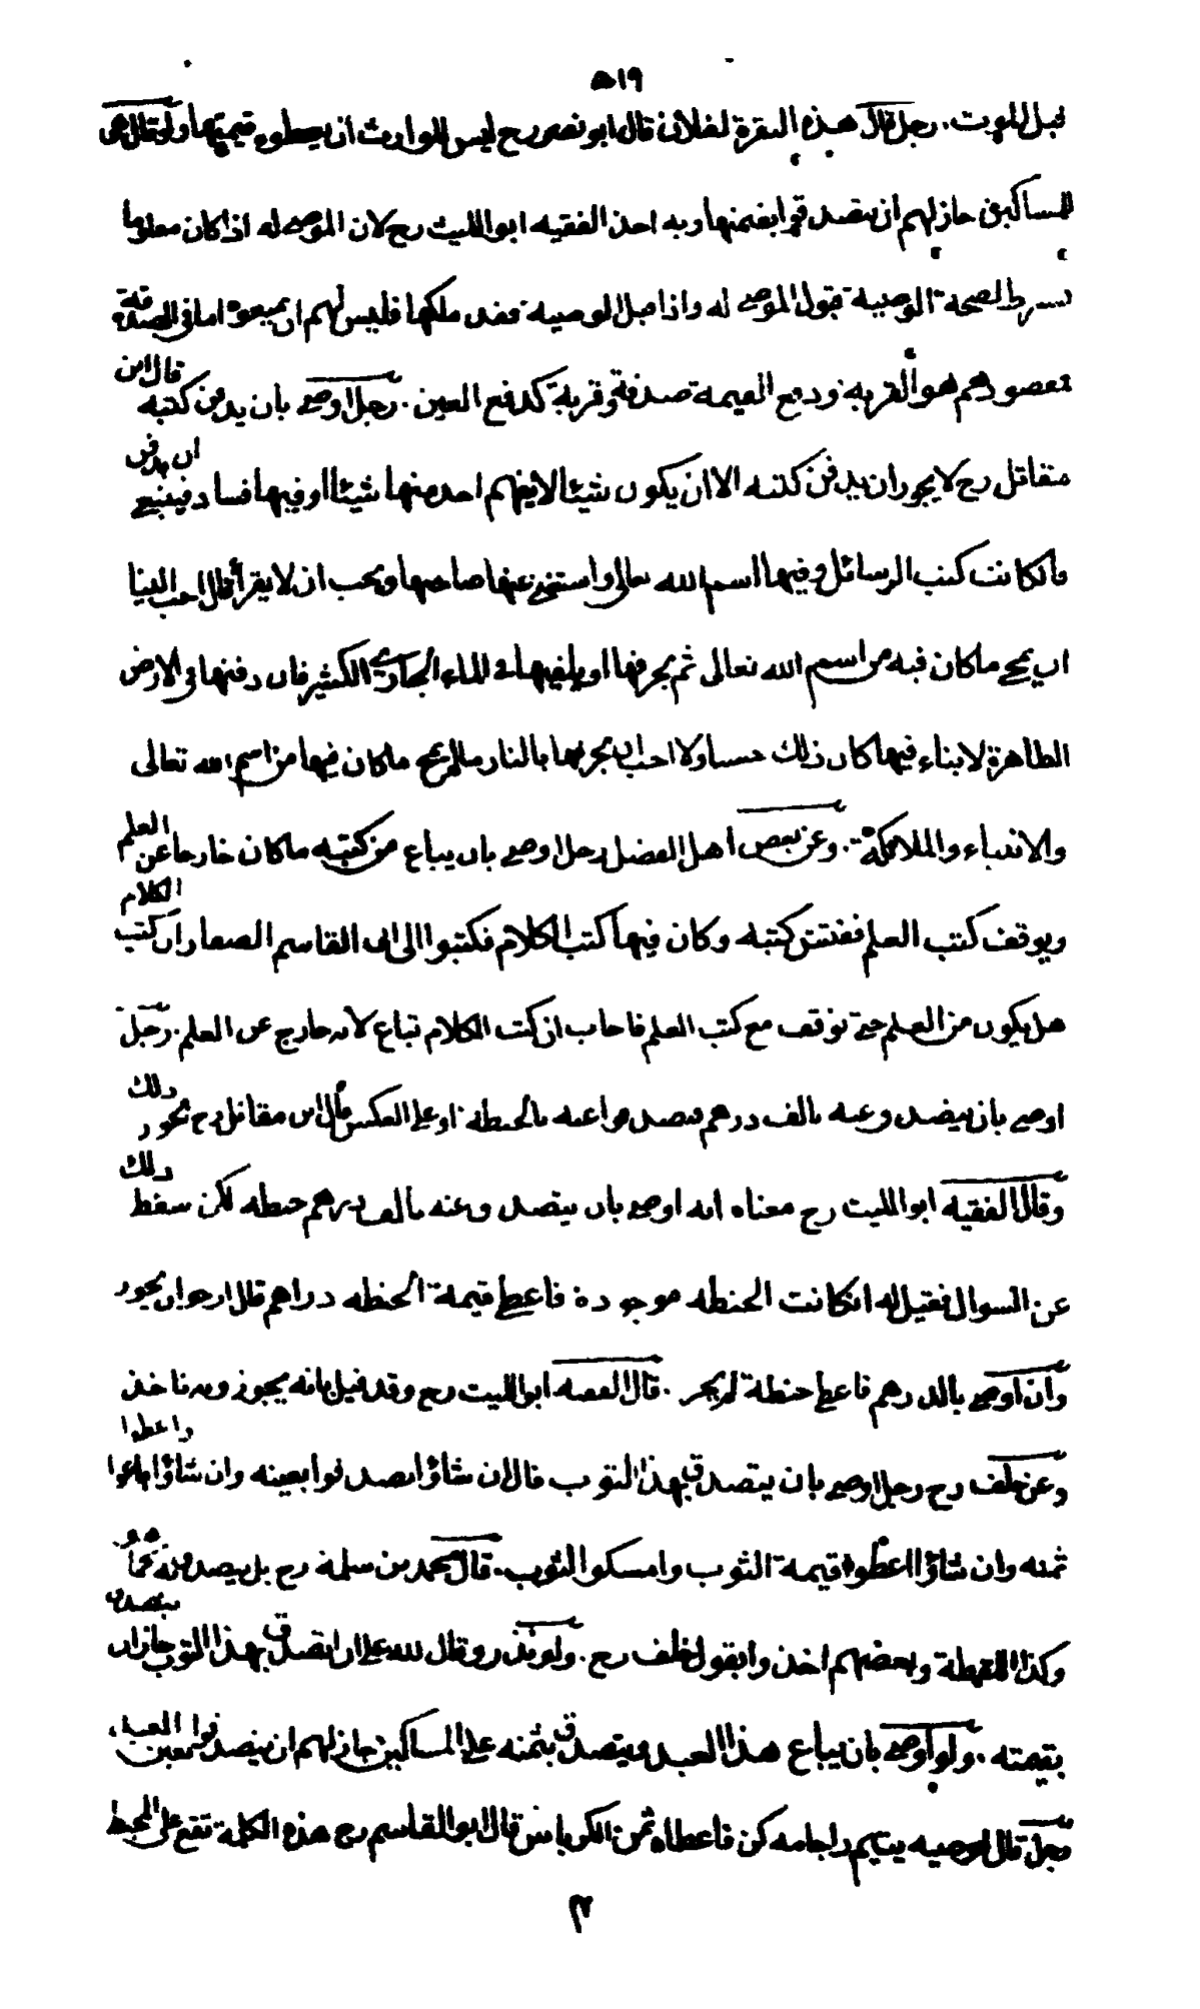 ٥١٩
قبل الموت . رجل قال هذه البقرة لفلان قال ابو نصر رح ليس للوارث ان يعطوه قيمتها ولو قال هى
للمساكين جاز لهم ان يتصدقوا بثمنها وبه اخذ الفقيه ابو الليث رح لان الموصى له اذا كان معلوما
يشرط لصحة الوصية قبول الموصى له واذا قبل الوصية فقد ملكها فليس لهم ان يمنعوه اما فى الصدقة
مقصودهم هو القربة ودفع القيمة صدقة وقربة كدفع العين . رجل اوصى بان يدفن كتبه قال ابن
مقاتل رح لا يجوز ان يدفن كتبه الا ان يكون شيئا لا يفهم احد منها شيئا او فيها فساد فينبغى ان يدفن
فان كانت كتب الرسائل وفيها اسم الله تعالى واستغنى عنها صاحبها ويحب ان لا يقرأ قال احب الينا
ان يمحى ما كان فيه من اسم الله تعالى ثم يحرقها او يلقيها فى الماء الجارى الكثير فان دفنها فى الارض
الطاهرة لا بناء فيها كان ذلك حسنا ولا احب ان يحرقها بالنار ما لم يمح ما كان فيها من اسم الله تعالى
والانبياء والملائكة . وعن بعض اهل الفضل رجل اوصى بان يباع من كتبه ما كان خارجا عن العلم
ويوقف كتب العلم ففتش كتبه وكان فيها كتب الكلام فكتبوا الى ابى القاسم الصفار ان كتب الكلام
هل يكون من العلم حتى توقف مع كتب العلم فاجاب ان كتب الكلام تباع لانه خارج عن العلم . رجل
اوصى بان يتصدق عنه بالف درهم فتصدقوا عنه بالحنطة او على العكس قال ابن مقاتل رح يجوز ذلك
وقال الفقيه ابو الليث رح معناه انه اوصى بان يتصدق عنه بالف درهم حنطه لكن سقط ذلك
عن السوال فقيل له ان كانت الحنطه موجودة فاعطى قيمة الحنطه دراهم قال ارجو ان يجوز
وان اوصى بالدرهم فاعطى حنطة لم يجز . قال الفقيه ابو الليث رح وقد قيل بانه يجوز وبه ناخذ
وعن خلف رح رجل اوصى بان يتصدق بهذا الثوب قال ان شاؤا تصدقوا بعينه وان شاؤا باعوا واعطوا
ثمنه وان شاؤا اعطوا قيمة الثوب وامسكوا الثوب . قال محمد بن سلمة رح بل يتصدق
وكذا اللقطة وبعضهم اخذوا بقول خلف رح . ولو نذر وقال لله على ان اتصدق بهذا الثوب جاز ان يتصدق
بقيمته . ولو اوصى بان يباع هذا العبد ويتصدق بثمنه على المساكين جاز لهم ان يتصدقوا بعين العبد
رجل قال لوصيه يتيم را جامه كن فاعطاه ثمن الكرباس قال ابو القاسم رح هذه الكلمة تقع على المخيط